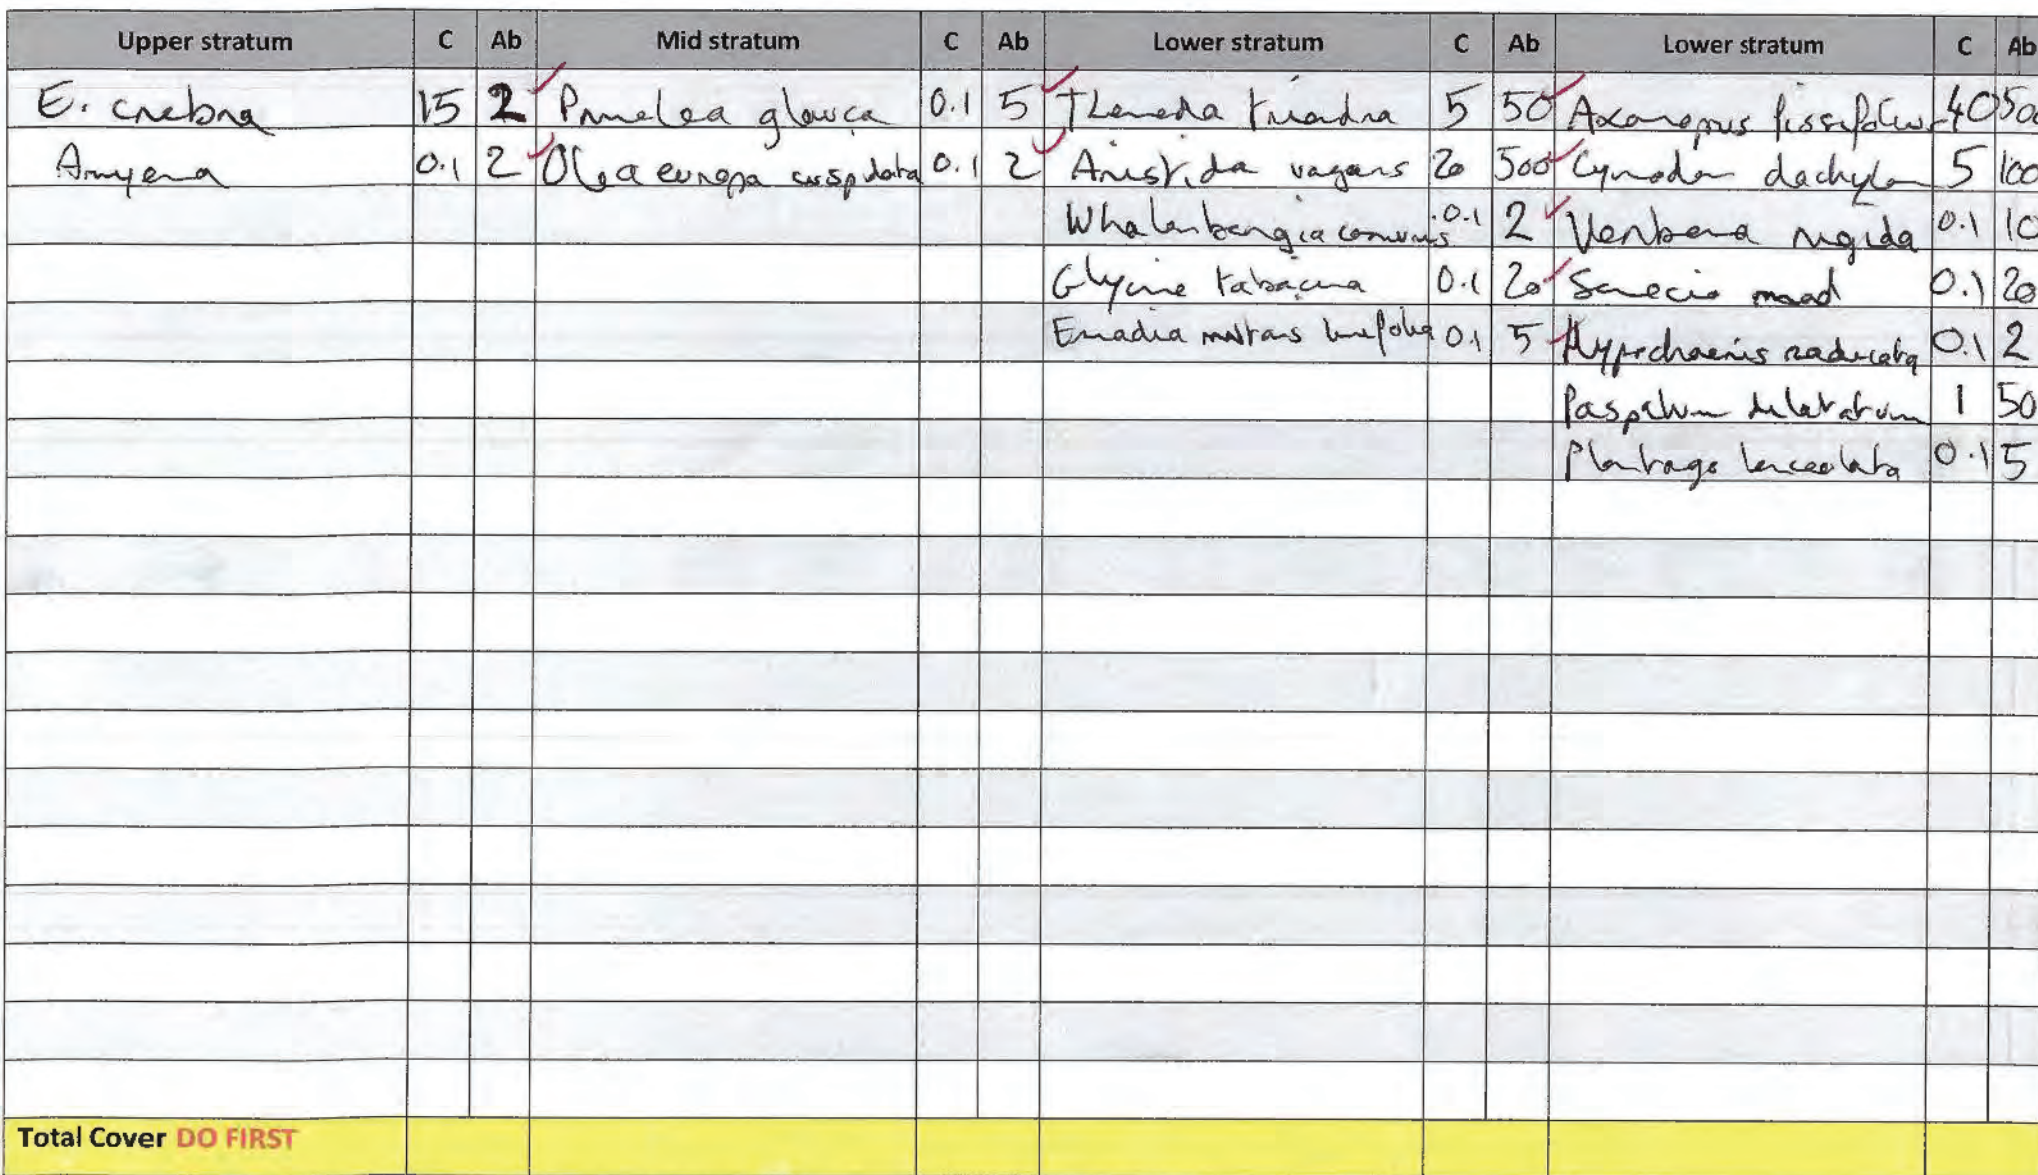 Upper stratum C Ab Mid stratum C Ab Lower stratum C Ab Lower stratum C Ab
E. crebra 15 2 Pimelea glauca 0.1 5 Themeda triandra 5 50 Axonopus fissifolius 40 500
Amyema 0.1 2 Olea europa cuspidata 0.1 2 Aristida vagans 20 500 Cynodon dachylon 5 100
Whalenbergia communis 0.1 2 Verbena rigida 0.1 10
Glycine tabacina 0.1 20 Senecio mad 0.1 20
Einadia nutans linifolia 0.1 5 Hypochaeris radicata 0.1 2
Paspalum dilatatum 1 50
Plantago lanceolata 0.1 5
Total Cover DO FIRST